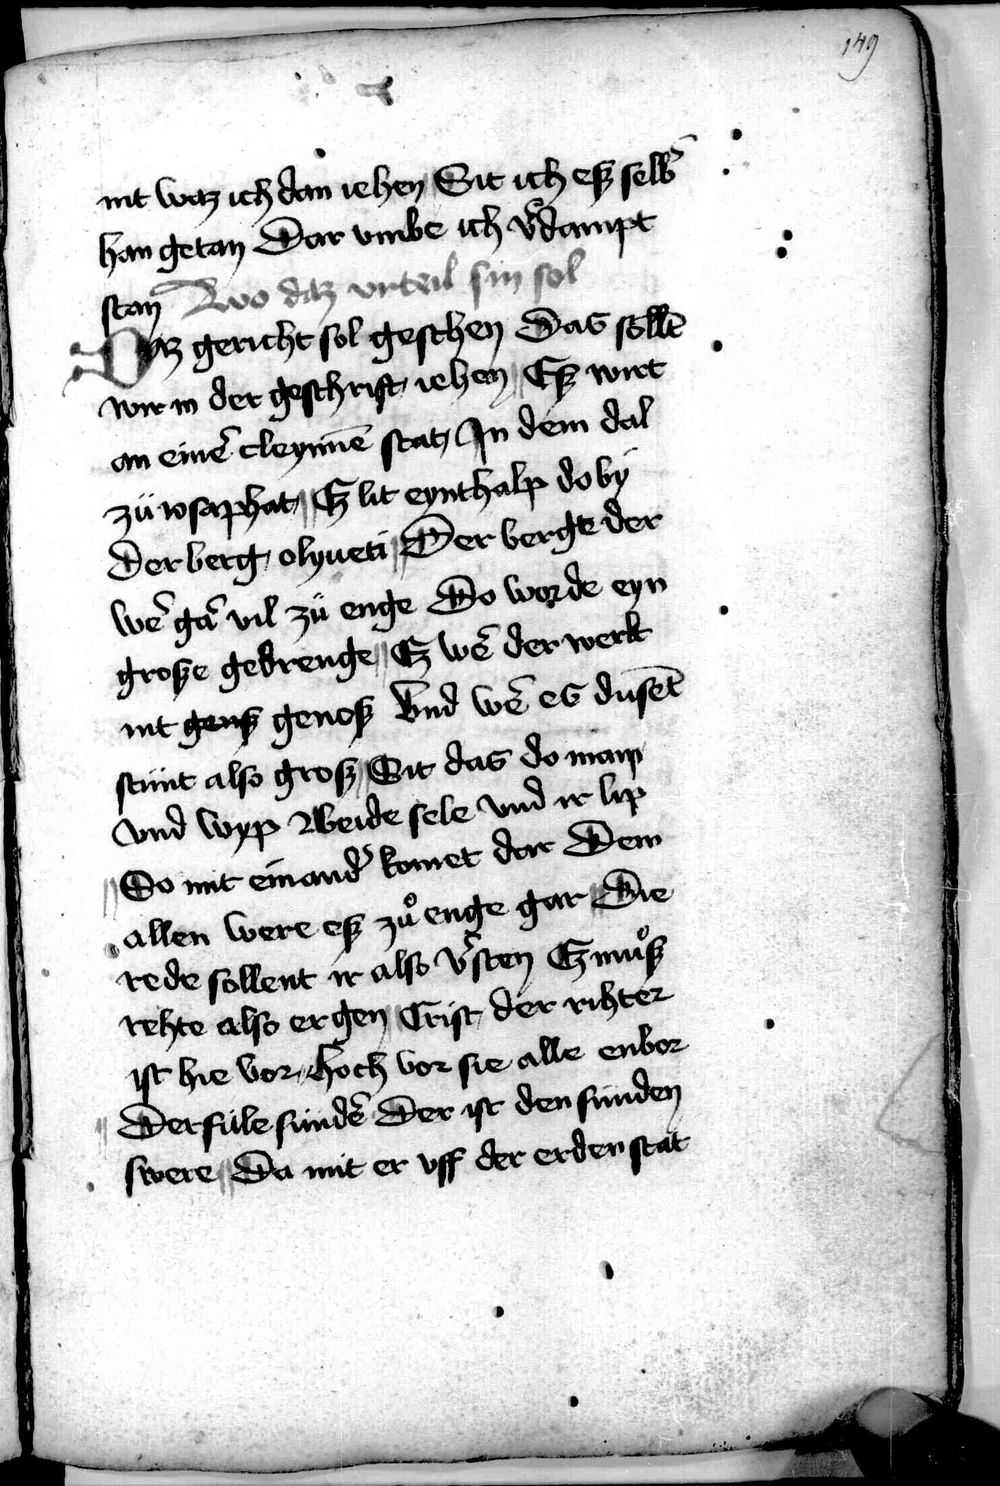 149
nit waz ich dan iehen Sit ich eß selb᷑
han getan Dar vmbe ich v᷑dampt
stan Wo daz vrteil sin sol
Daz gericht sol geschehen Das sollē
wir in der geschrift iehen Eß wirt
an einē cleynnē stat In dem dal
zü iosaphat Eß lit eynthalp do by
Der berg olyueti Der berge der
we᷑ ga᷑ vil zü enge Do worde eyn
große gedrenge Eß we᷑ der werlt
nit genß genoß Vnd we᷑ es dusēt
stünt also groß Sit das do man
vnd wyp Beide sele vnd ir lip
Do mit einand᷑ komet dar Dem
allen were eß zuͦ enge gar Die
rede sollent ir also v᷑sten Eß muͦß
rehte also ergen Crist der rihter
ist hie vor Hoch vor sie alle enbor
Der füle sünde᷑ Der ist den sünden
swere Da mit er vff der erden stat